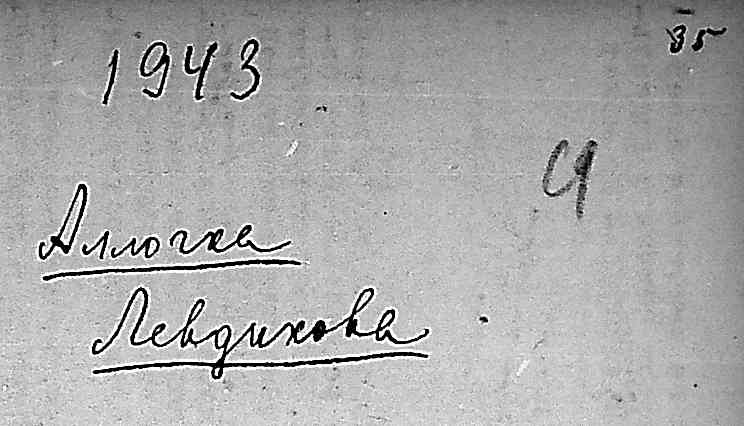 35
1943
Аллочка
Левдикова